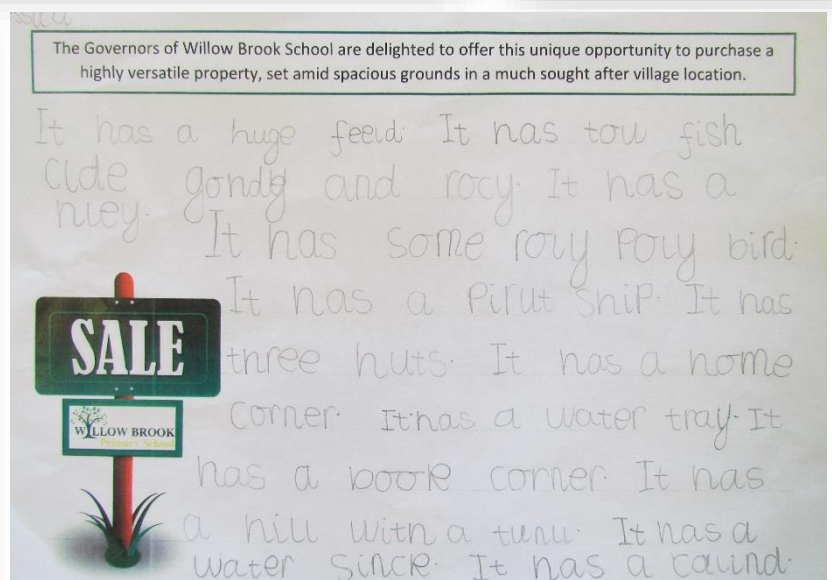 The Governors of Willow Brook School are delighted to offer this unique opportunity to purchase a
highly versatile property, set amid spacious grounds in a much sought after village location.
It has a huge feeld. It has tow fish
clde gondy and rocy. It has a
niey.
It has some roly poly bird.
It has a pirut ship. It has
SALE
three huts. It has a home
corner. It has a water tray. It
WILLOW BROOK
Primary School
has a book corner. It has
a hill with a tunu. It has a
water sinck. It has a caund.